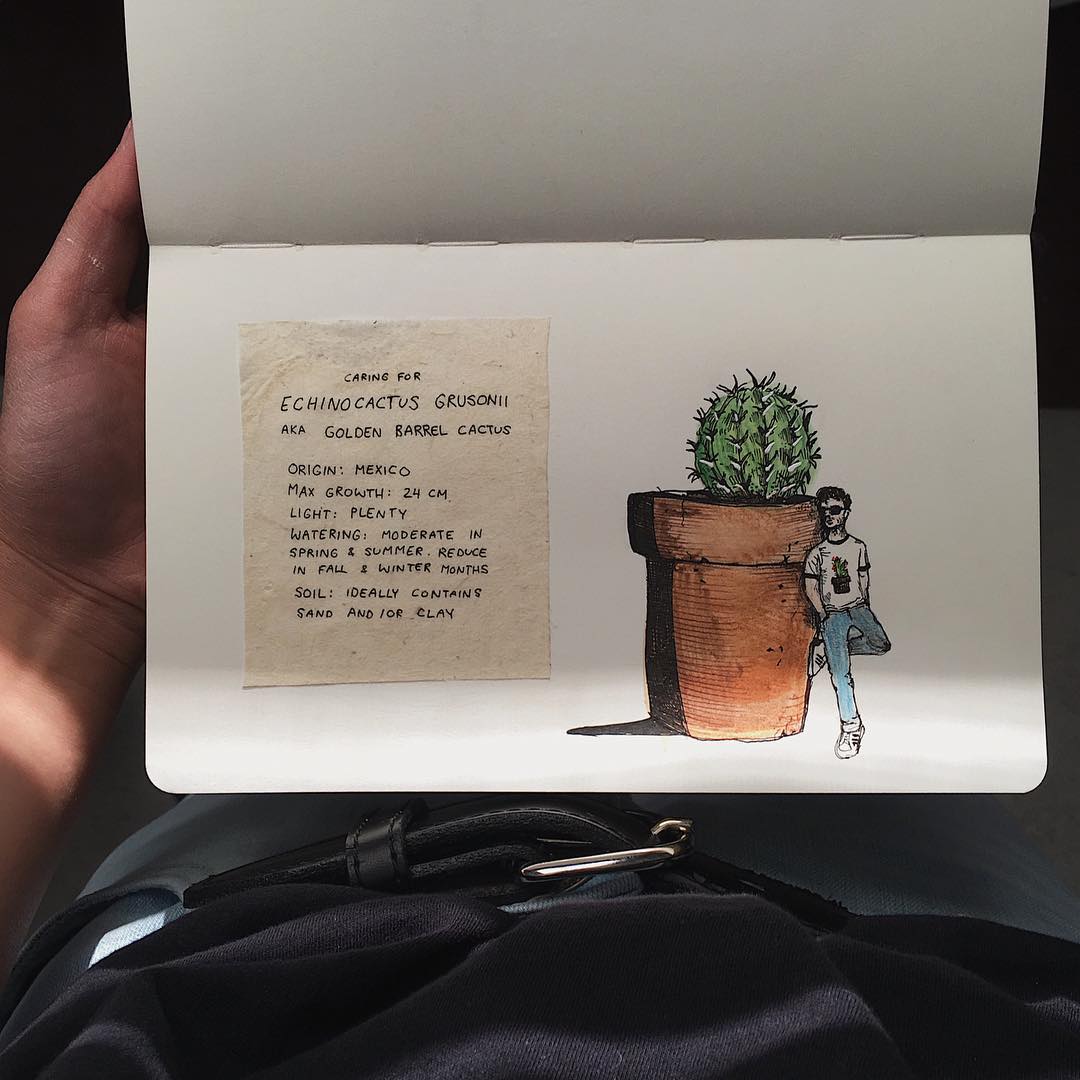 CARING FOR
ECHINOCACTUS GRUSONII
AKA GOLDEN BARREL CACTUS
ORIGIN: MEXICO
MAX GROWTH: 24 CM
LIGHT: PLENTY
WATERING: MODERATE IN
SPRING & SUMMER. REDUCE
IN FALL & WINTER MONTHS
SOIL: IDEALLY CONTAINS
SAND AND/OR CLAY